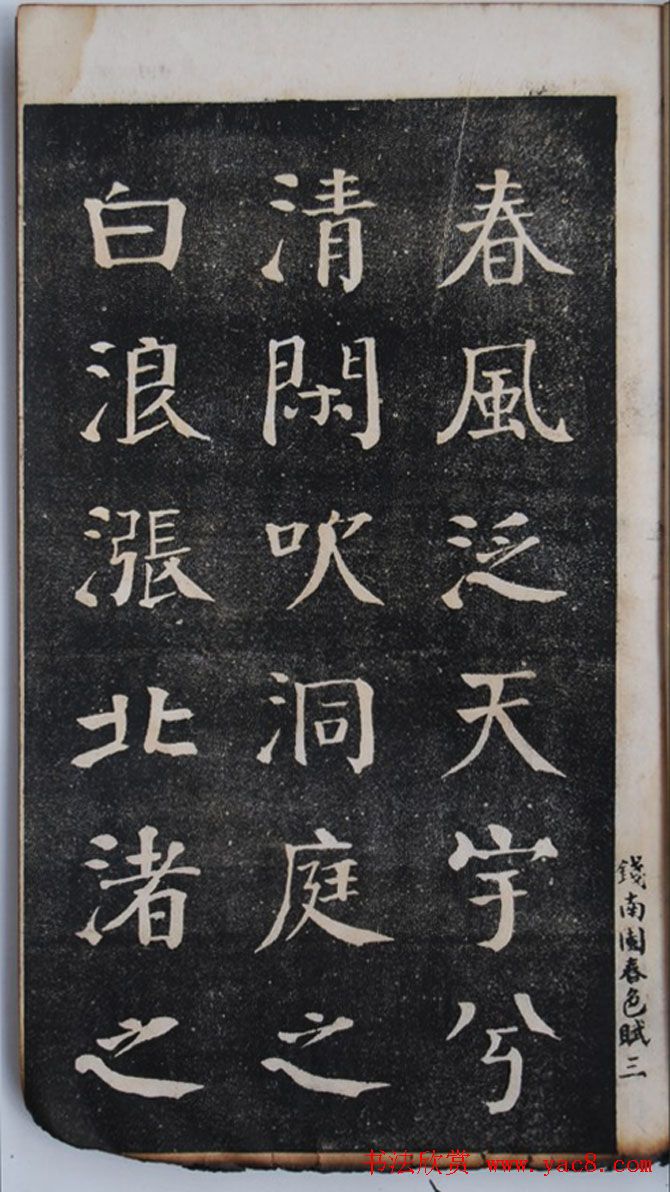 春風泛天宇兮
清閑吹洞庭之
白浪漲北渚之
錢南園春色賦三
书法欣赏 www.yac8.com